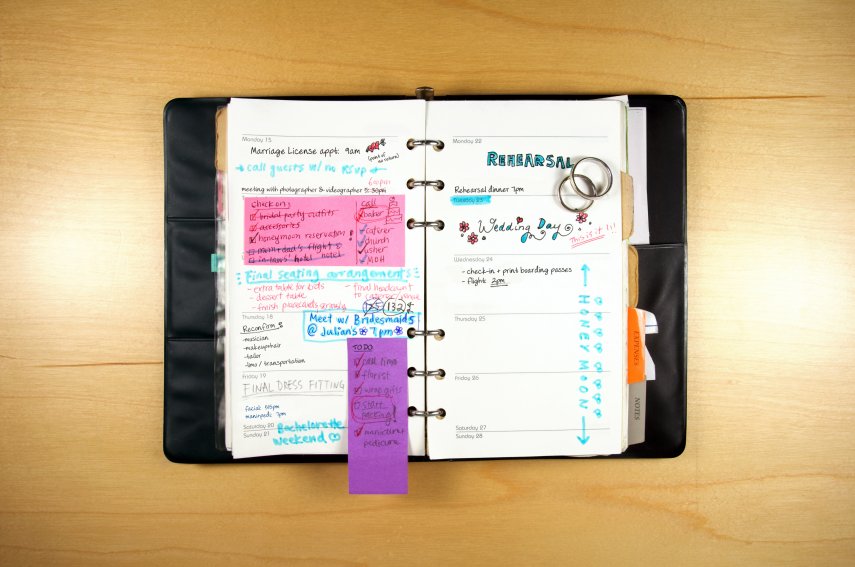 Monday 15
Marriage License appt: 9am
(point of no return)
→ call guests w/ no RSVP ←
6:00pm
meeting with photographer & videographer 5:30pm
check on:
bridal party outfits
accessories
honeymoon reservation!
mom + dad's flight &
in-laws' hotel
call
baker
caterer
church
usher
MOH
Final seating arrangements
- extra table for kids
- dessert table
- finish placecards
- final headcount
to caterer/
125 132
Thursday 18
Meet w/ Bridesmaids
@ Julian's 7pm
Reconfirm
-musician
-makeup+hair
-tailor
-limo / transportation
Friday 19
FINAL DRESS FITTING
facial: 5:15pm
mani+pedi: 7pm
Saturday 20
Sunday 21
Bachelorette
Weekend
TO DO
call limo
florist
wrap gifts
start
packing!
manicure
pedicure
Monday 22
REHEARSAL
Rehearsal dinner 7pm
Tuesday 23
Wedding Day
This is it!!
Wednesday 24
- check-in + print boarding passes
- flight: 2pm
Thursday 25
Friday 26
Saturday 27
Sunday 28
← HONEYMOON →
EXPENSES
NOTES